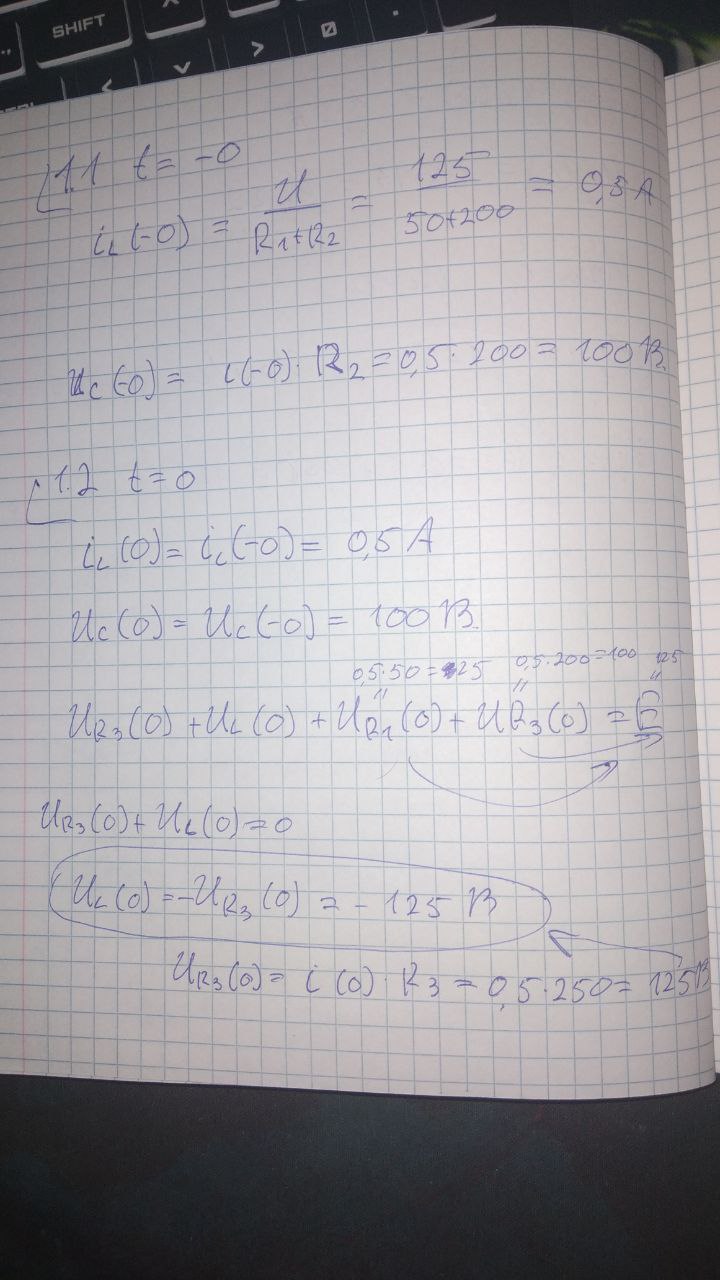 SHIFT
1.1 t = -0
i_L(-0) = U / (R1+R2) = 125 / (50+200) = 0,5 A
u_C(-0) = i(-0) · R2 = 0,5 · 200 = 100 В.
1.2 t = 0
i_L(0) = i_L(-0) = 0,5 A
u_C(0) = u_C(-0) = 100 В.
0,5·50 = 25 0,5·200=100 125
" " "
U_R3(0) + U_L(0) + U_R1(0) + U_R3(0) = E
U_R3(0) + U_L(0) = 0
U_L(0) = -U_R3(0) = - 125 В
U_R3(0) = i(0) · R3 = 0,5·250 = 125 В